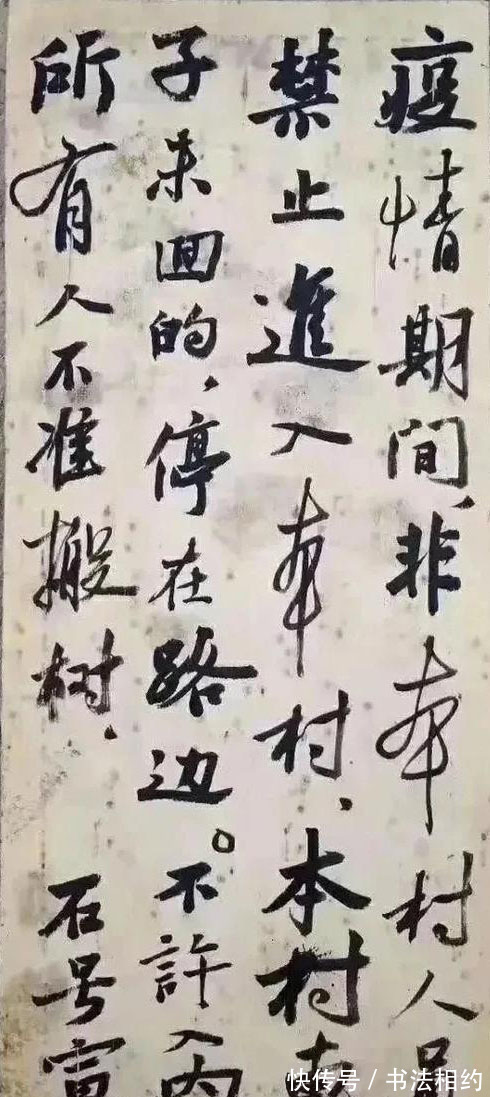 疫情期间、非本村人
禁止進入本村、本村
子未回的，停在路边。不許入内
所有人不准搬树. 石号
快传号 / 书法相约